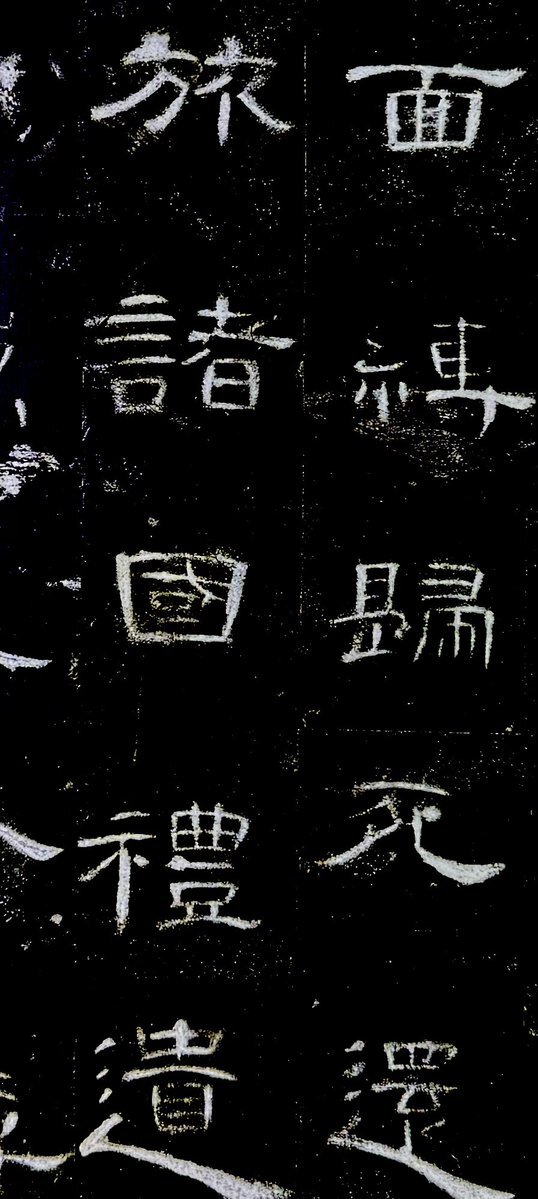 面縛歸死還
旅諸國禮遺